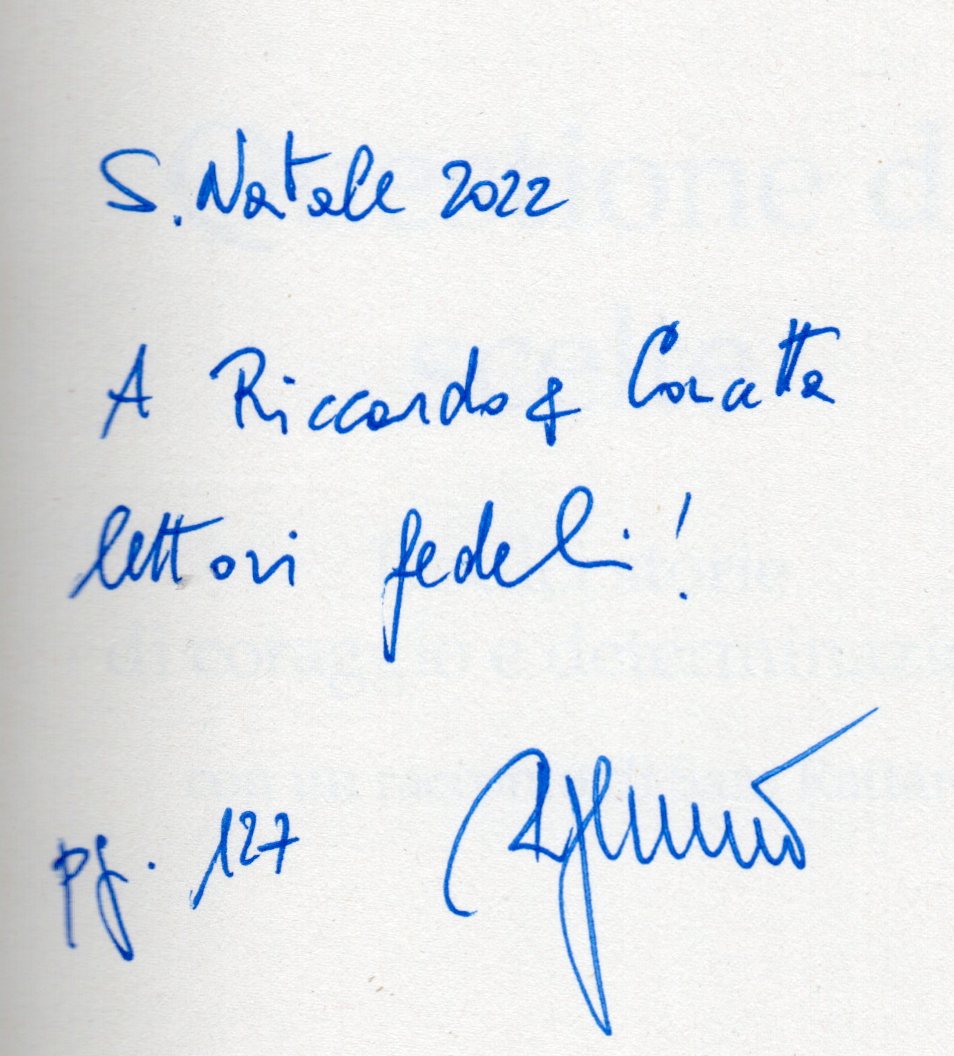 S. Natale 2022
A Riccardo &
lettori fedeli!
pg. 127